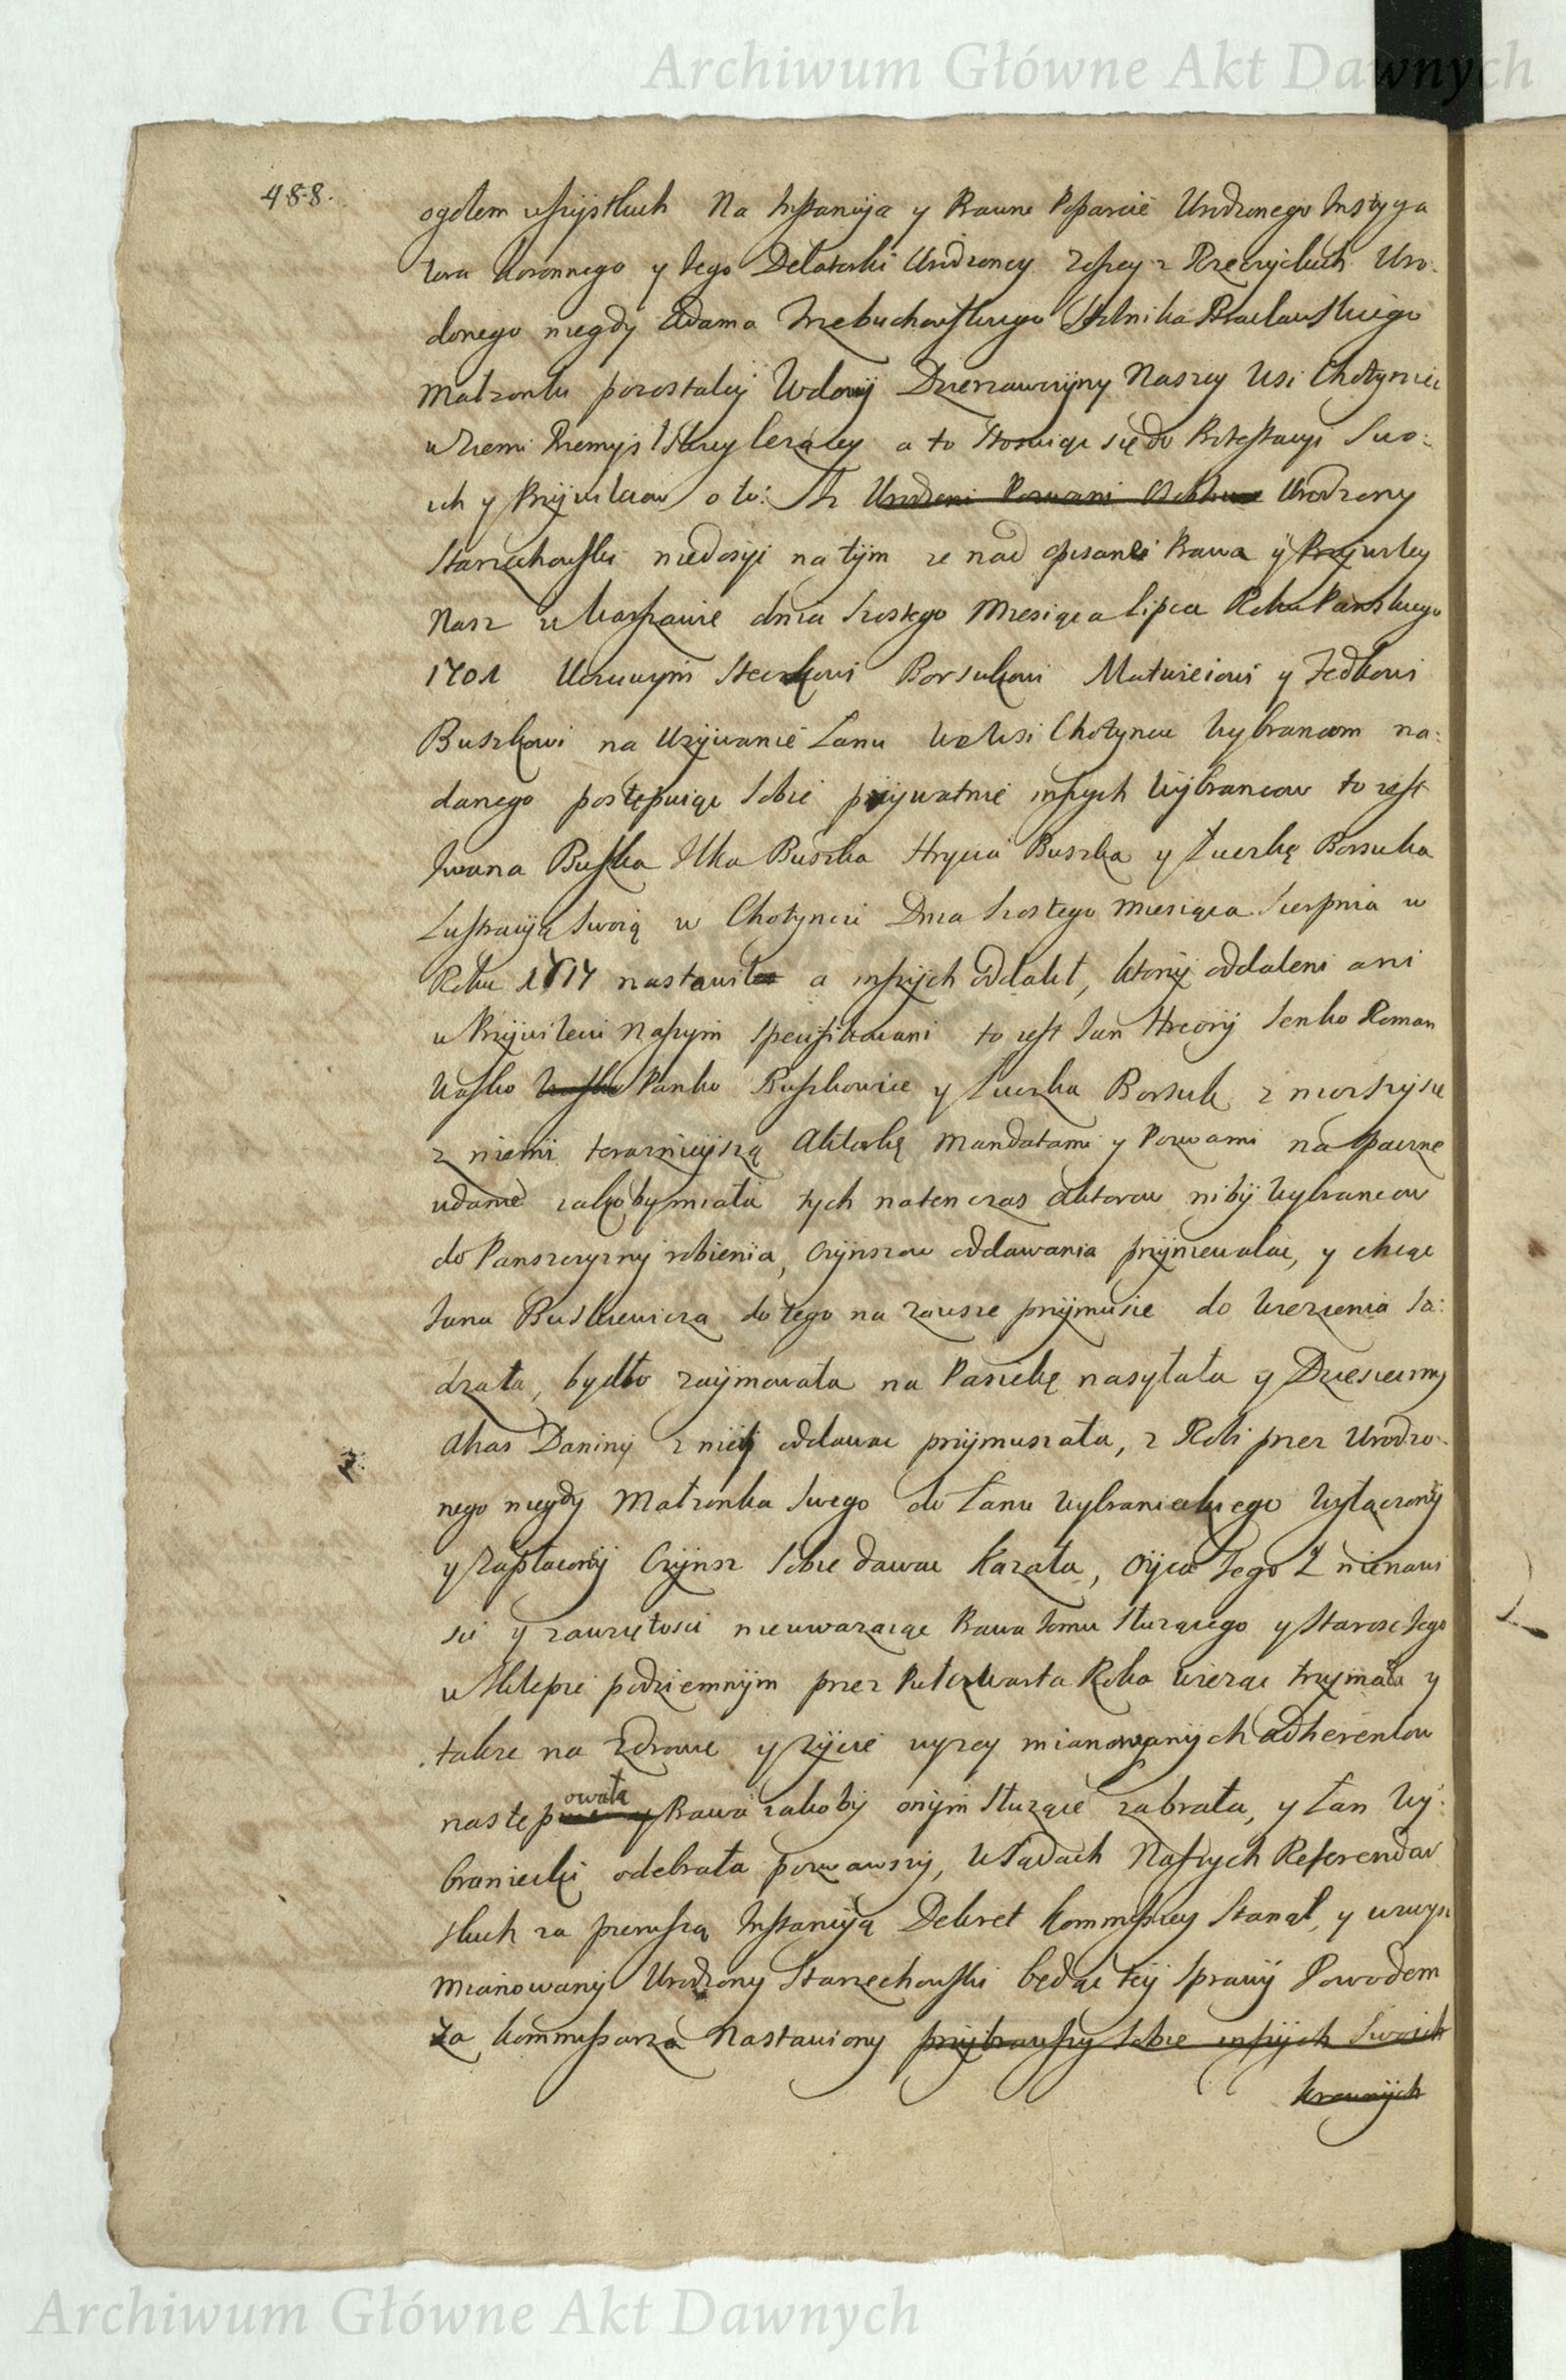 Archiwum Główne Akt Dawnych
488.
ogołem wszystkich Na Instancyą y Prawne Poparcie Urodzonego Instyga
tora Koronnego y Jego Delatorki Urodzoney Zofiey z Rzeczyckich Uro-
dzonego niegdy Adama Trzebuchowskiego Stolnika Bracławskiego
Małzonki pozostałey Wdowy Dzierzawczyny Naszey Wsi Chotyniec
w Ziemi Przemyslskiey lezącey a to Stosuiąc się do Protestacyi Swo:
ich y Przywileiow o to: Iz Urodzeni Pozwani Urodzony
Starzechowski niedosyć na tym ze nad opisanie Prawa y Przywiley
Nasz w Warszawie dnia Szostego Miesiąca Lipca Roku Panskiego
1701 Uczciwym Steckowi Borsukowi Matwieiowi y Fedkowi
Buszkowi na Uzywanie Łanu We Wsi Chotyncu Wybrancom na:
danego postępuiąc Sobie prywatnie inszych Wybrancow to iest
Iwana Buszka Ilka Buszka Hrycia Buszka y Łuczkę Borsuka
Lustracyą Swoią w Chotyncu Dnia Szostego Miesiąca Sierpnia w
Roku 1717 nastawił a inszych oddalił, ktorzy oddaleni ani
w Przywileiu Naszym Specifikowani to iest Jan Hreory Senko Roman
Wasko Wasko Panko Buszkowice y Łuczka Borsuk zniosszy się
z niemi teraznieyszą Aktorkę Mandatami y Pozwami na opaczne
udanie iakoby miała tych natenczas Aktorow niby Wybrancow
do Panszczyzny robienia, Czynszow oddawania przyniewalać, y chcąc
Jana Buskiewicza do tego na zawsze przymusić do Więzienia Sa:
dzała, bydło zaymowała na Pasiekę nasyłała y Dziesięciny
Akas Daniny z niey oddawać przymuszała, z Roli przez Urodzo-
nego niegdy Małzonka Swego do Łanu Wybranieckiego Wyłączony
y Zapłacony Czynsz Sobie dawać kazała, Oyca Jego Z nienawi
sci y zawziętosci nieuwazaiąc Prawa Jemu Słuzącego y Starosc Jego
w Sklepie podziemnym przez Pułczwarta Roku więząc trzymała y
także na Zdrowie y zycie wyzey mianowanych Adherentow
następowała y Prawa iakoby onym Słuzące zabrała, y Łan Wy:
braniecki odebrała pozwawszy, W Sądach Naszych Referendar
skich za pierwszą Instancyą Dekret Kommissyey Stanął, y wzwysz
mianowany Urodzony Starzechowski będąc tey Sprawy Powodem
Za Kommissarza Nastawiony przybrawszy Sobie inszych Swoich
krewnych
Archiwum Główne Akt Dawnych